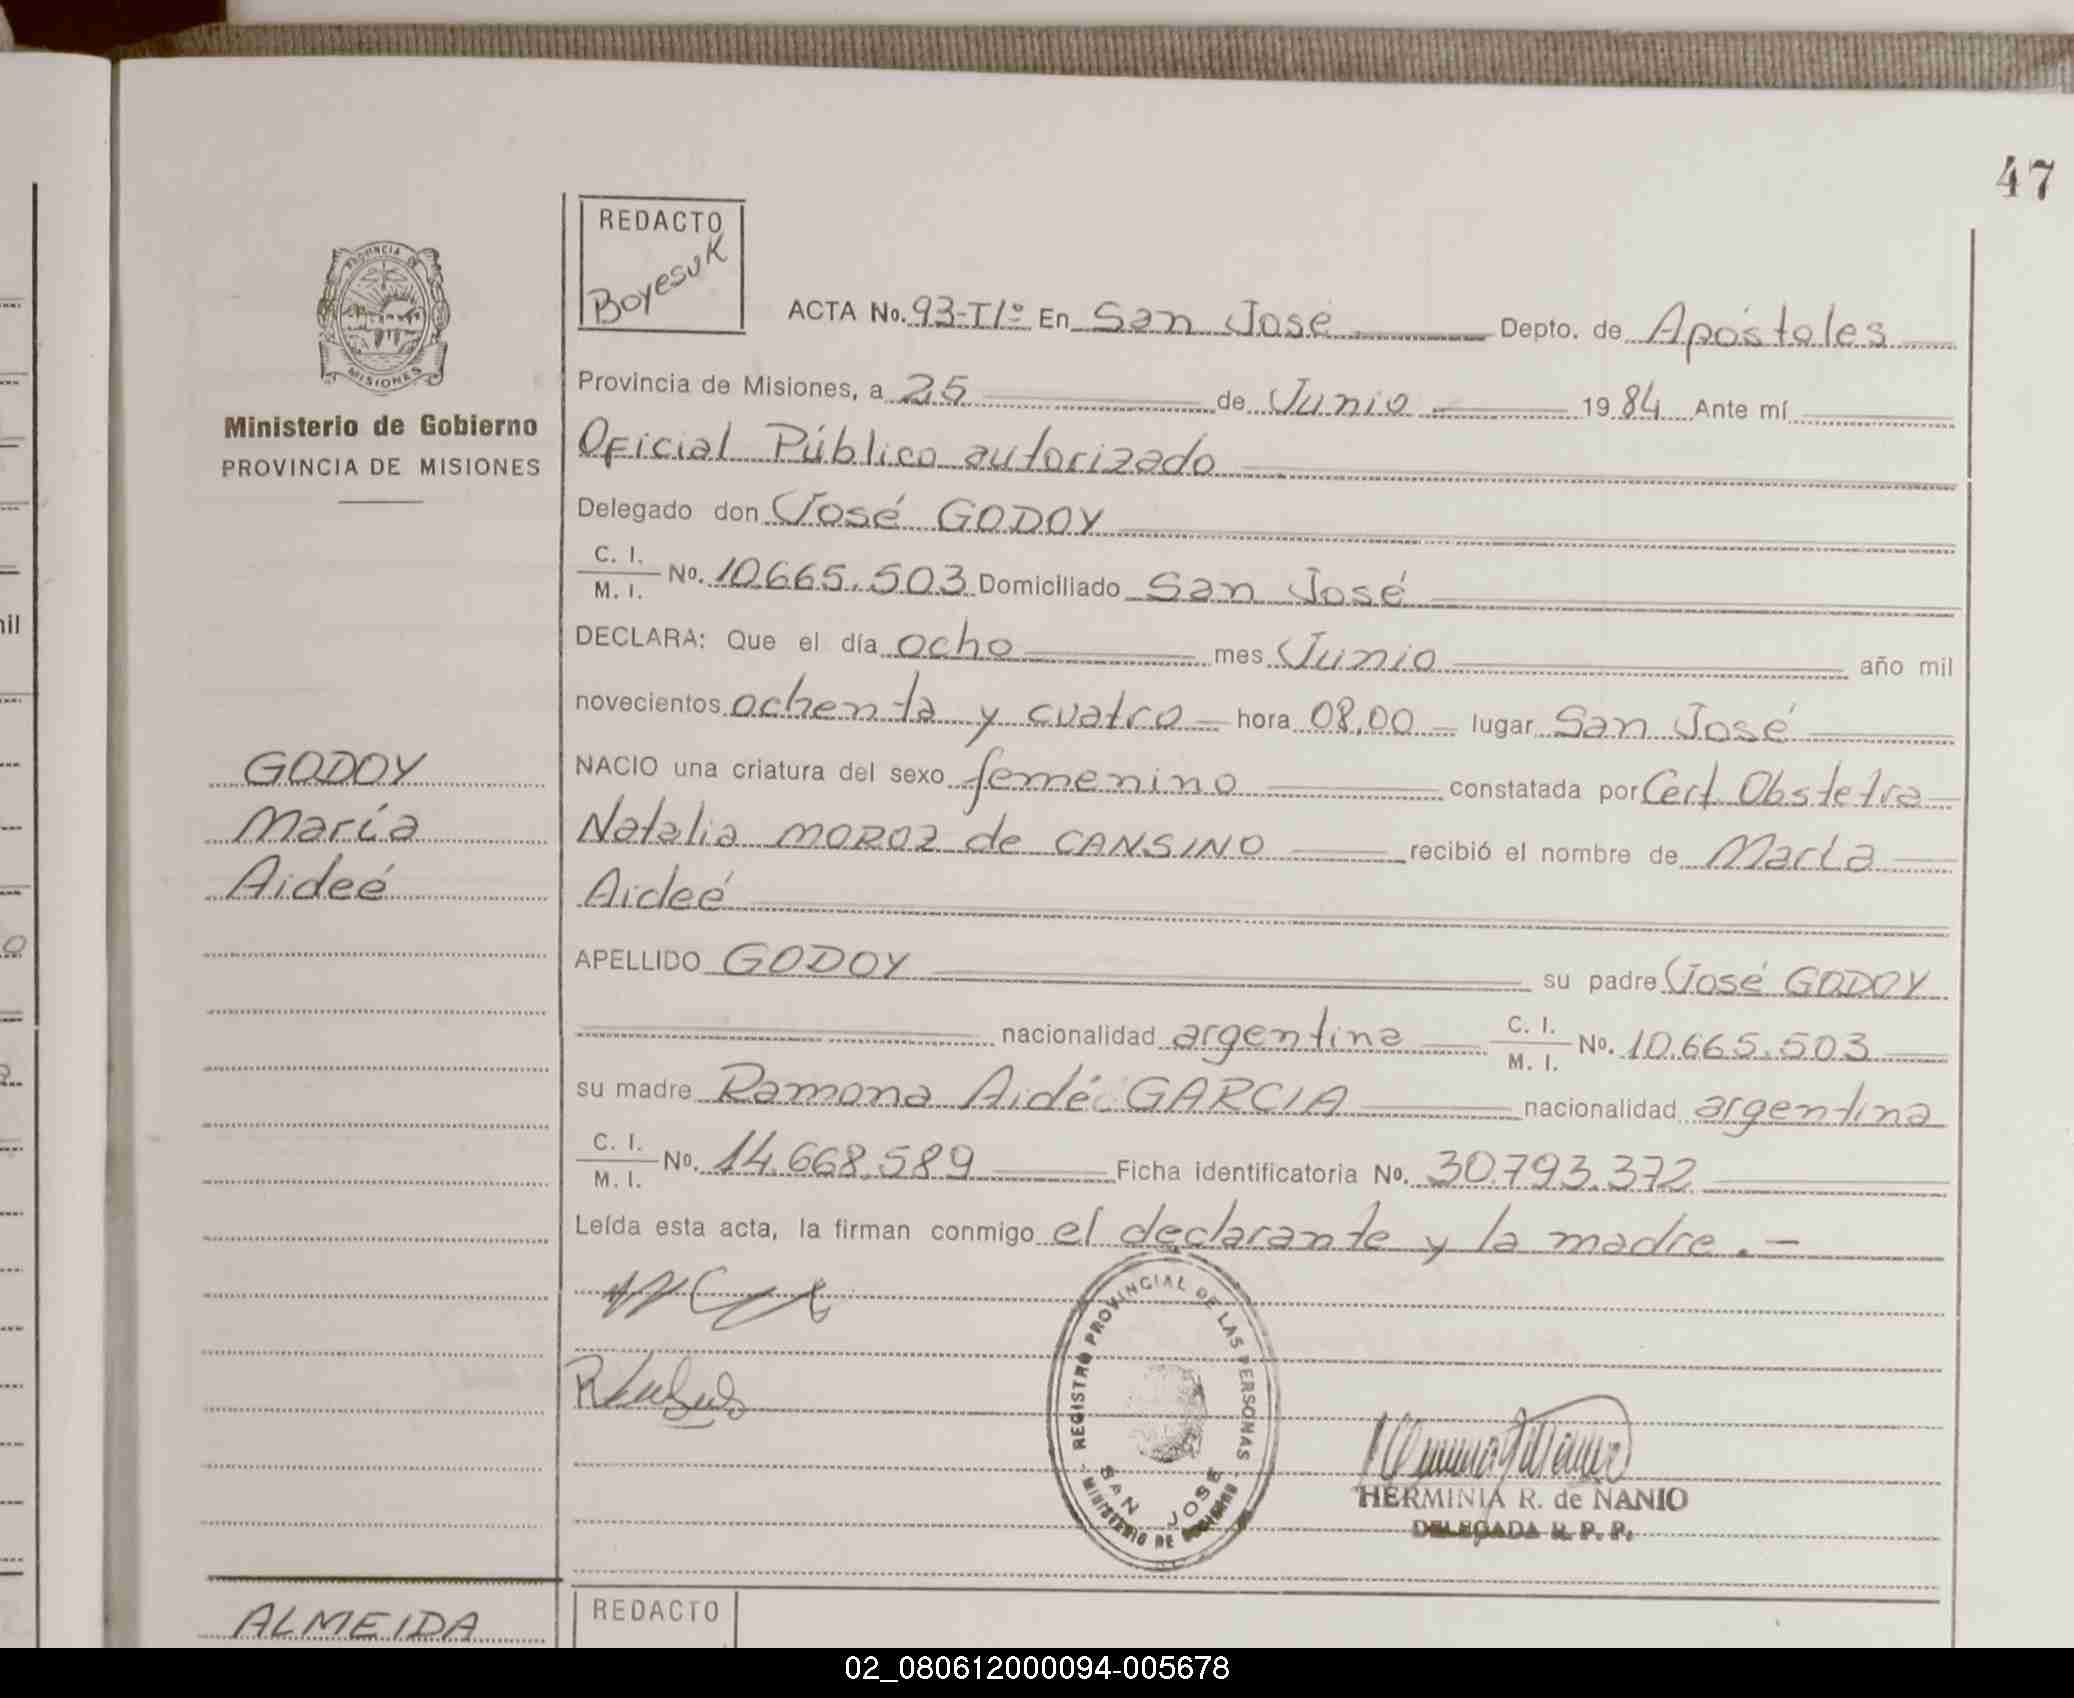 47
PROVINCIA DE
MISIONES
Ministerio de Gobierno
PROVINCIA DE MISIONES
REDACTO
Boyesuk
ACTA No. 93-T1º En San José Depto. de Apóstoles
Provincia de Misiones, a 25 de Junio 1984 Ante mí
Oficial Público autorizado
Delegado don José GODOY
C. I.
M. I. No. 10.665.503 Domiciliado San José
DECLARA: Que el día ocho mes Junio año mil
novecientos ochenta y cuatro hora 08,00 lugar San José
NACIO una criatura del sexo femenino constatada por Cert. Obstetra
Natalia MOROZ de CANSINO recibió el nombre de María
Aideé
APELLIDO GODOY su padre José GODOY
nacionalidad argentina C. I.
M. I. No. 10.665.503
su madre Ramona Aidé GARCIA nacionalidad argentina
C. I.
M. I. No. 14.668.589 Ficha identificatoria No. 30.793.372
Leída esta acta, la firman conmigo el declarante y la madre.-
GODOY
María
Aideé
REGISTRO PROVINCIAL DE LAS PERSONAS
SAN JOSE
MINISTERIO DE GOBIERNO
HERMINIA R. de NANIO
DELEGADA R. P. P.
ALMEIDA
REDACTO
nil
02_080612000094-005678